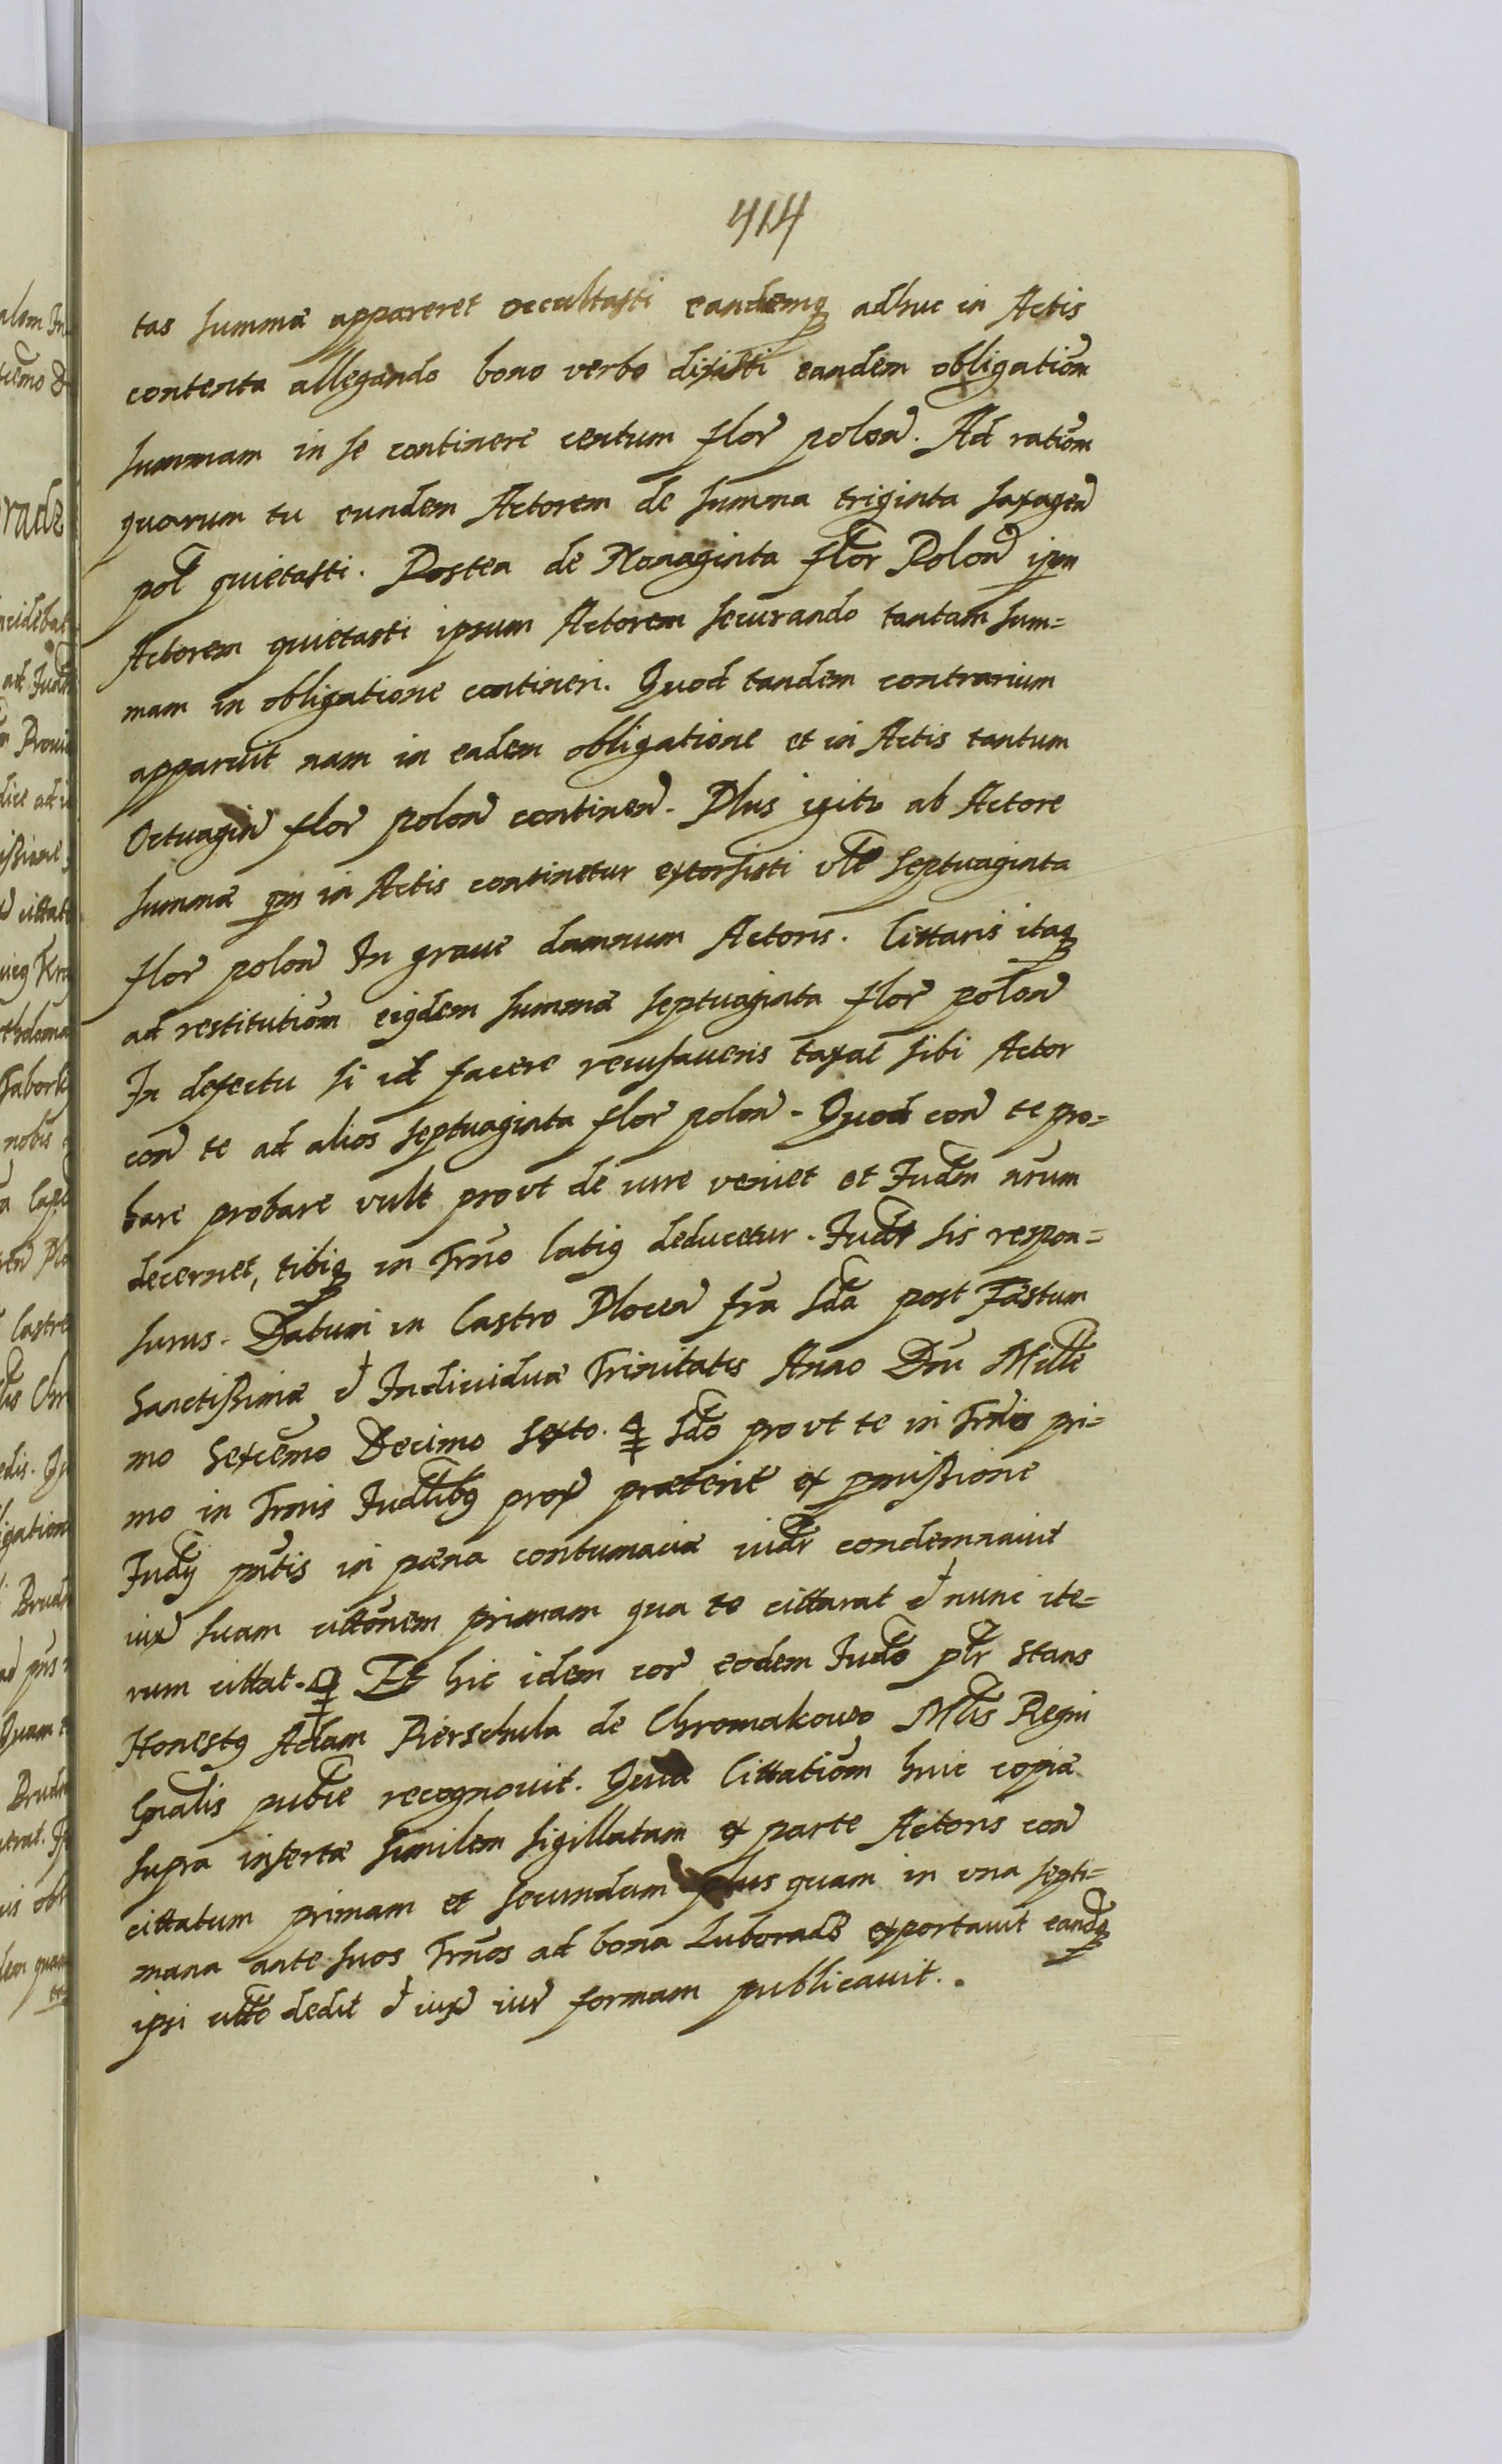 414
tas summæ appareret occultasti eandemq adhuc in Actis
contenta allegando bono verbo dixisti eandem obligatiom
summam in se continere centum flor polon. Ad ratiom
quorum tu eundem Actorem de summa triginta saxagen
pol quietasti. Postea de Nonaginta flor Polon ipm
Actorem quietasti ipsum Actorem securando tantam sum=
mam in obligatione contineri. Quod tandem contrarium
apparuit nam in eadem obligatione et in Actis tantum
Octuagin flor polon continen. Plus igitr ab Actore
summæ qm in Actis continetur extorsisti vlt septuaginta
flor polon In graue damnum Actoris. Cittaris itaq
ad restitutiom eiqdem summæ septuaginta flor polon
In defectu si id facere recusaueris taxat sibi Actor
con te ad alios septuaginta flor polon. Quod con te pro=
bare probare vult prout de iure veniet et Judm nrum
decernet, tibiq in Trno latiq deducetur. Judr sis respon=
surus. Datum in Castro Plocen fra Sda post Festum
Sanctissimæ et Indiuiduæ Trinitatis Anno Dni Mille
mo Sexcemo Decimo Sexto. Sdo prout te in Trnis pri=
mo in Trnis Judlibq prox præterit ex pmissione
Judy pntis in pæna contumaciæ iudr condemnauit
iux suam cittonem primam qua te cittarat et nunc ite=
rum cittat. Et hic idem cor eodem Judo plr stans
Honestq Adam Pierschula de Chromakowo Mlis Regni
Gnalis publce recognouit. Quia Cittatiom huic copiæ
supra insertæ similem sigillatam ex parte Actoris con
cittatum primam et secundam plus quam in vna septi=
mana ante suos Trnos ad bona Luboradz exportauit eandq
ipsi citto dedit et iux iur formam publicauit.